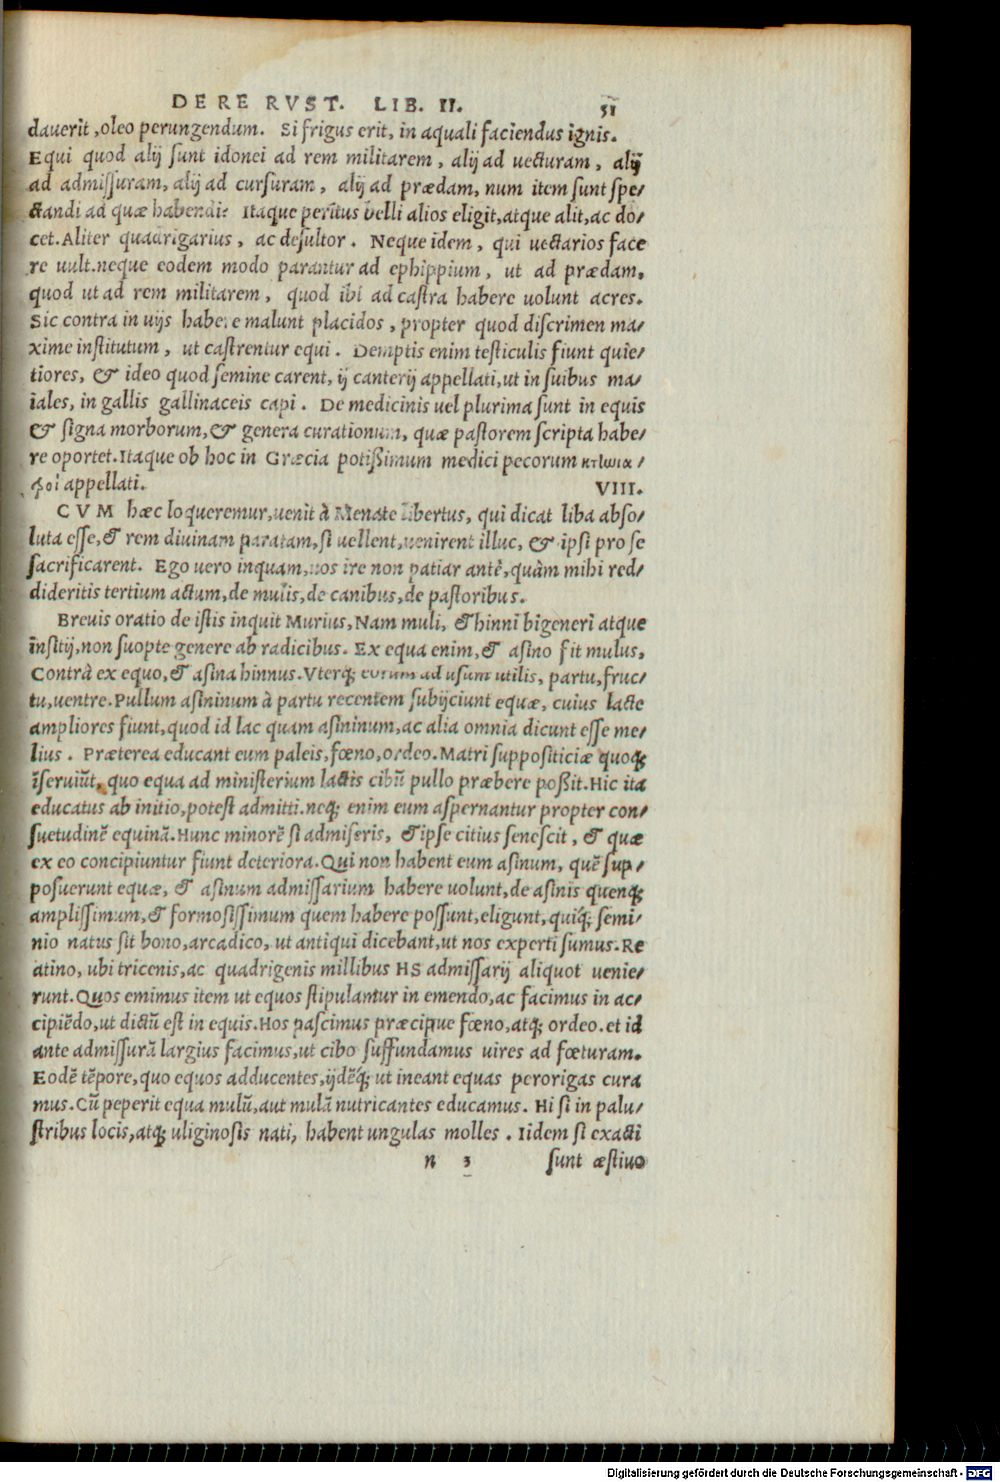 DE RE RVST. LIB. II. 51
dauerit, oleo perungendum. Si frigus erit, in aquali faciendus ignis.
Equi quod alij sunt idonei ad rem militarem, alij ad uecturam, alij
ad admissuram, alij ad cursuram, alij ad prædam, num item sunt spe/
ctandi ad quæ habendi? Itaque peritus belli alios eligit, atque alit, ac do/
cet. Aliter quadrigarius, ac desultor. Neque idem, qui uectarios face
re uult. neque eodem modo parantur ad ephippium, ut ad prædam,
quod ut ad rem militarem, quod ibi ad castra habere uolunt acres.
Sic contra in uijs habere malunt placidos, propter quod discrimen ma/
xime institutum, ut castrentur equi. Demptis enim testiculis fiunt quie/
tiores, & ideo quod semine carent, ij canterij appellati, ut in suibus ma/
iales, in gallis gallinaceis capi. De medicinis uel plurima sunt in equis
& signa morborum, & genera curationum, quæ pastorem scripta habe/
re oportet. Itaque ob hoc in Græcia potißimum medici pecorum κτίωια/
ροὶ appellati. VIII.
CVM hæc loqueremur, uenit à Menate libertus, qui dicat liba abso/
luta esse, & rem diuinam paratam, si uellent, uenirent illuc, & ipsi pro se
sacrificarent. Ego uero inquam, uos ire non patiar antè, quàm mihi red/
dideritis tertium actum, de mulis, de canibus, de pastoribus.
Breuis oratio de istis inquit Murius, Nam muli, & hinni bigeneri atque
insitij, non suopte genere ab radicibus. Ex equa enim, & asino fit mulus,
Contrà ex equo, & asina hinnus. Vterq; eorum ad usum utilis, partu, fruc/
tu, uentre. Pullum asininum à partu recentem subijciunt equæ, cuius lacte
ampliores fiunt, quod id lac quam asininum, ac alia omnia dicunt esse me/
lius. Præterea educant eum paleis, fœno, ordeo. Matri suppositiciæ quoq;
īseruiūt, quo equa ad ministerium lactis cibū pullo præbere poßit. Hic ita
educatus ab initio, potest admitti. neq; enim eum aspernantur propter con/
suetudinē equinā. Hunc minorē si admiseris, & ipse citius senescit, & quæ
ex eo concipiuntur fiunt deteriora. Qui non habent eum asinum, quē sup/
posuerunt equæ, & asinum admissarium habere uolunt, de asinis quenq;
amplissimum, & formosissimum quem habere possunt, eligunt, quíq; semi/
nio natus sit bono, arcadico, ut antiqui dicebant, ut nos experti sumus. Re
atino, ubi tricenis, ac quadrigenis millibus HS admissarij aliquot uenie/
runt. Quos emimus item ut equos stipulantur in emendo, ac facimus in ac/
cipiēdo, ut dictū est in equis. Hos pascimus præcipue fœno, atq; ordeo. et id
ante admissurā largius facimus, ut cibo suffundamus uires ad fœturam.
Eodē tēpore, quo equos adducentes, ijdēq́; ut ineant equas perorigas cura
mus. Cū peperit equa mulū, aut mulā nutricantes educamus. Hi si in palu/
stribus locis, atq; uliginosis nati, habent ungulas molles. Iidem si exacti
n 3 sunt æstiuo
Digitalisierung gefördert durch die Deutsche Forschungsgemeinschaft - DFG